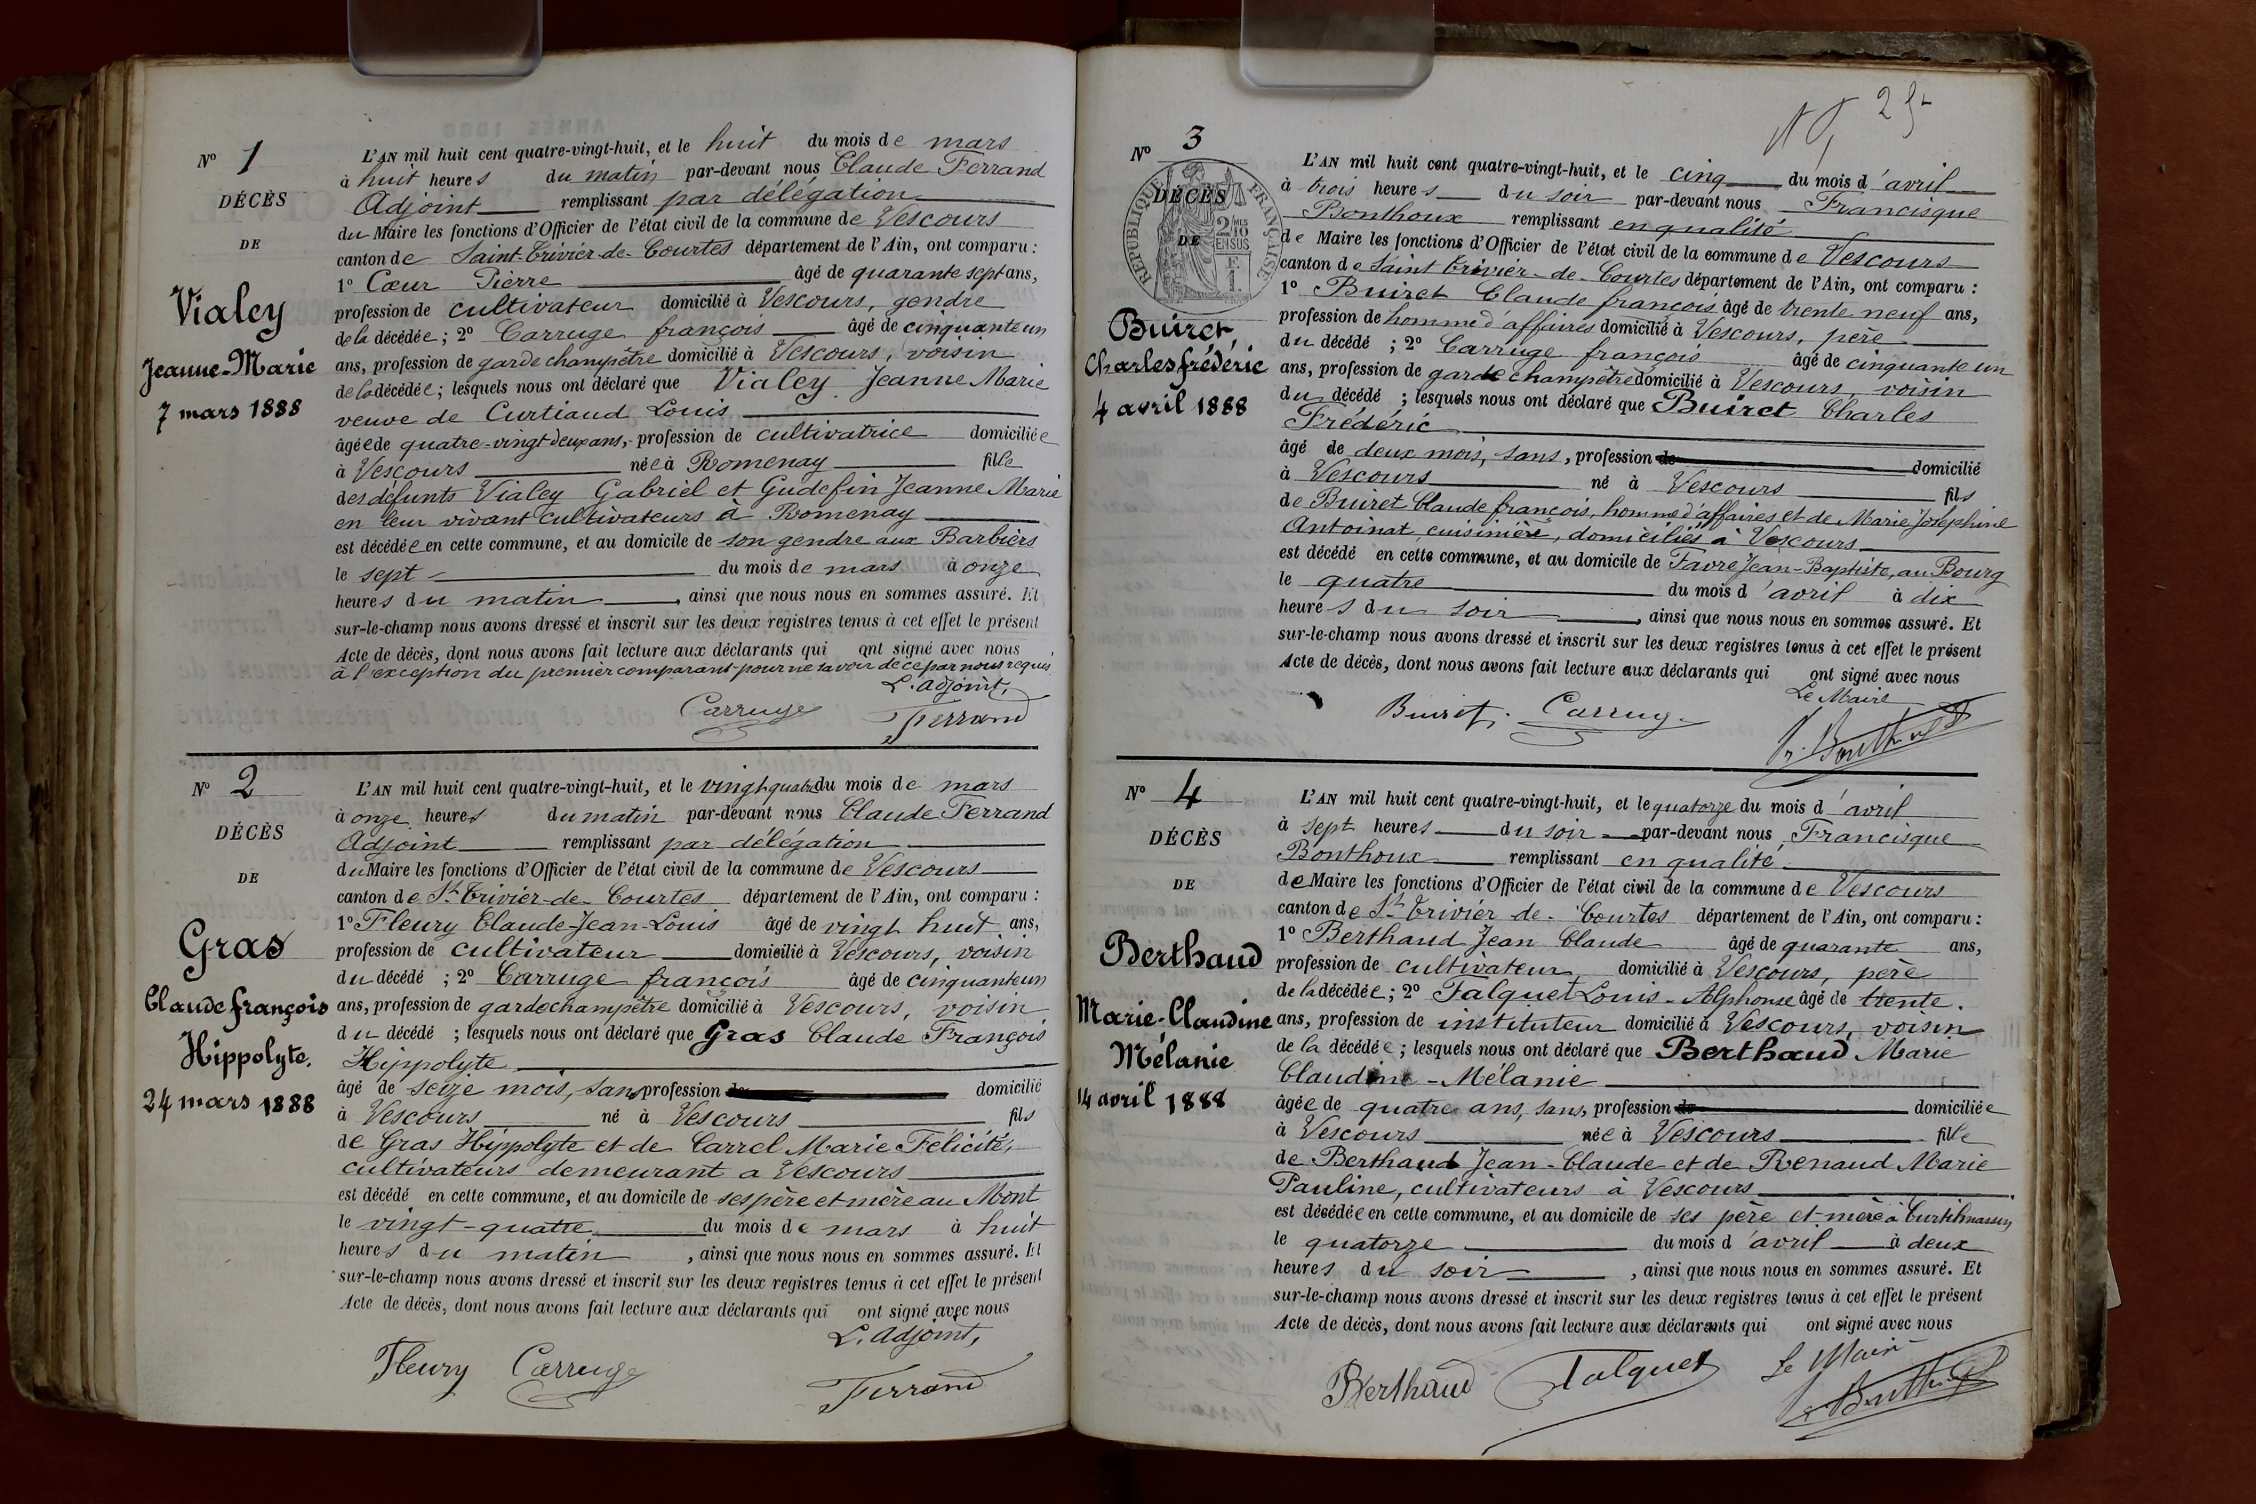 N° 1
DÉCÈS
DE
Vialey
Jeanne-Marie
7 mars 1888
L'AN mil huit cent quatre-vingt-huit, et le huit du mois de mars
à huit heures du matin par-devant nous Claude Ferrand
Adjoint remplissant par délégation
du Maire les fonctions d'Officier de l'état civil de la commune de Vescours
canton de Saint-Trivier-de-Courtes département de l'Ain, ont comparu :
1° Cœur Pierre âgé de quarante sept ans,
profession de cultivateur domicilié à Vescours, gendre
de la décédée ; 2° Carruge françois âgé de cinquante un
ans, profession de garde champêtre domicilié à Vescours, voisin
de la décédée ; lesquels nous ont déclaré que Vialey Jeanne Marie
veuve de Curtiaud Louis
âgée de quatre-vingt deux ans, profession de cultivatrice domiciliée
à Vescours née à Romenay fille
des défunts Vialey Gabriel et Gudefin Jeanne Marie
en leur vivant cultivateurs à Romenay
est décédée en cette commune, et au domicile de son gendre aux Barbiers
le sept du mois de mars à onze
heures du matin, ainsi que nous nous en sommes assuré. Et
sur-le-champ nous avons dressé et inscrit sur les deux registres tenus à cet effet le présent
Acte de décès, dont nous avons fait lecture aux déclarants qui ont signé avec nous
à l'exception du premier comparant pour ne savoir de ce par nous requis
L'adjoint,
Carruge Ferrand
N° 2
DÉCÈS
DE
Gras
Claude françois
Hippolyte.
24 mars 1888
L'AN mil huit cent quatre-vingt-huit, et le vingt quatre du mois de mars
à onze heures du matin par-devant nous Claude Ferrand
Adjoint remplissant par délégation
du Maire les fonctions d'Officier de l'état civil de la commune de Vescours
canton de St Trivier-de-Courtes département de l'Ain, ont comparu :
1° Fleury Claude-Jean-Louis âgé de vingt huit ans,
profession de cultivateur domicilié à Vescours, voisin
du décédé ; 2° Carruge françois âgé de cinquante un
ans, profession de garde champêtre domicilié à Vescours, voisin
du décédé ; lesquels nous ont déclaré que Gras Claude François
Hippolyte
âgé de seize mois, sans profession de domicilié
à Vescours né à Vescours fils
de Gras Hippolyte et de Carrel Marie Félicité,
cultivateurs demeurant a Vescours
est décédé en cette commune, et au domicile de ses père et mère au Mont
le vingt-quatre du mois de mars à huit
heures du matin, ainsi que nous nous en sommes assuré. Et
sur-le-champ nous avons dressé et inscrit sur les deux registres tenus à cet effet le présent
Acte de décès, dont nous avons fait lecture aux déclarants qui ont signé avec nous
L'adjoint,
Fleury Carruge Ferrand
N° 3
RÉPUBLIQUE FRANÇAISE
DÉCÈS
DE
Buiret,
Charles frédéric
4 avril 1888
L'AN mil huit cent quatre-vingt-huit, et le cinq du mois d'avril
à trois heures du soir par-devant nous Francisque
Bonthoux remplissant en qualité
de Maire les fonctions d'Officier de l'état civil de la commune de Vescours
canton de Saint Trivier-de-Courtes département de l'Ain, ont comparu :
1° Buiret Claude françois âgé de trente neuf ans,
profession de homme d'affaires domicilié à Vescours, père
du décédé ; 2° Carruge françois âgé de cinquante un
ans, profession de garde champêtre domicilié à Vescours, voisin
du décédé ; lesquels nous ont déclaré que Buiret Charles
Frédéric
âgé de deux mois, sans, profession de domicilié
à Vescours né à Vescours fils
de Buiret Claude françois, homme d'affaires et de Marie Joséphine
Antoinat, cuisinière, domiciliés à Vescours
est décédé en cette commune, et au domicile de Favre Jean-Baptiste, au Bourg
le quatre du mois d'avril à dix
heures du soir, ainsi que nous nous en sommes assuré. Et
sur-le-champ nous avons dressé et inscrit sur les deux registres tenus à cet effet le présent
Acte de décès, dont nous avons fait lecture aux déclarants qui ont signé avec nous
Le Maire
Buiret. Carruge Fr. Bonthoux
N° 4
DÉCÈS
DE
Berthaud
Marie-Claudine
Mélanie
14 avril 1888
L'AN mil huit cent quatre-vingt-huit, et le quatorze du mois d'avril
à sept heures du soir par-devant nous Francisque
Bonthoux remplissant en qualité
de Maire les fonctions d'Officier de l'état civil de la commune de Vescours
canton de St Trivier-de-Courtes département de l'Ain, ont comparu :
1° Berthaud Jean Claude âgé de quarante ans,
profession de cultivateur domicilié à Vescours, père
de la décédée ; 2° Falquet Louis-Alphonse âgé de trente.
ans, profession de instituteur domicilié à Vescours, voisin
de la décédée ; lesquels nous ont déclaré que Berthaud Marie
Claudine-Mélanie
âgée de quatre ans, sans, profession de domiciliée
à Vescours née à Vescours fille
de Berthaud Jean-Claude et de Renaud Marie
Pauline, cultivateurs à Vescours
est décédée en cette commune, et au domicile de ses père et mère à
le quatorze du mois d'avril à deux
heures du soir, ainsi que nous nous en sommes assuré. Et
sur-le-champ nous avons dressé et inscrit sur les deux registres tenus à cet effet le présent
Acte de décès, dont nous avons fait lecture aux déclarants qui ont signé avec nous
Le Maire
Berthaud Falquet Bonthoux